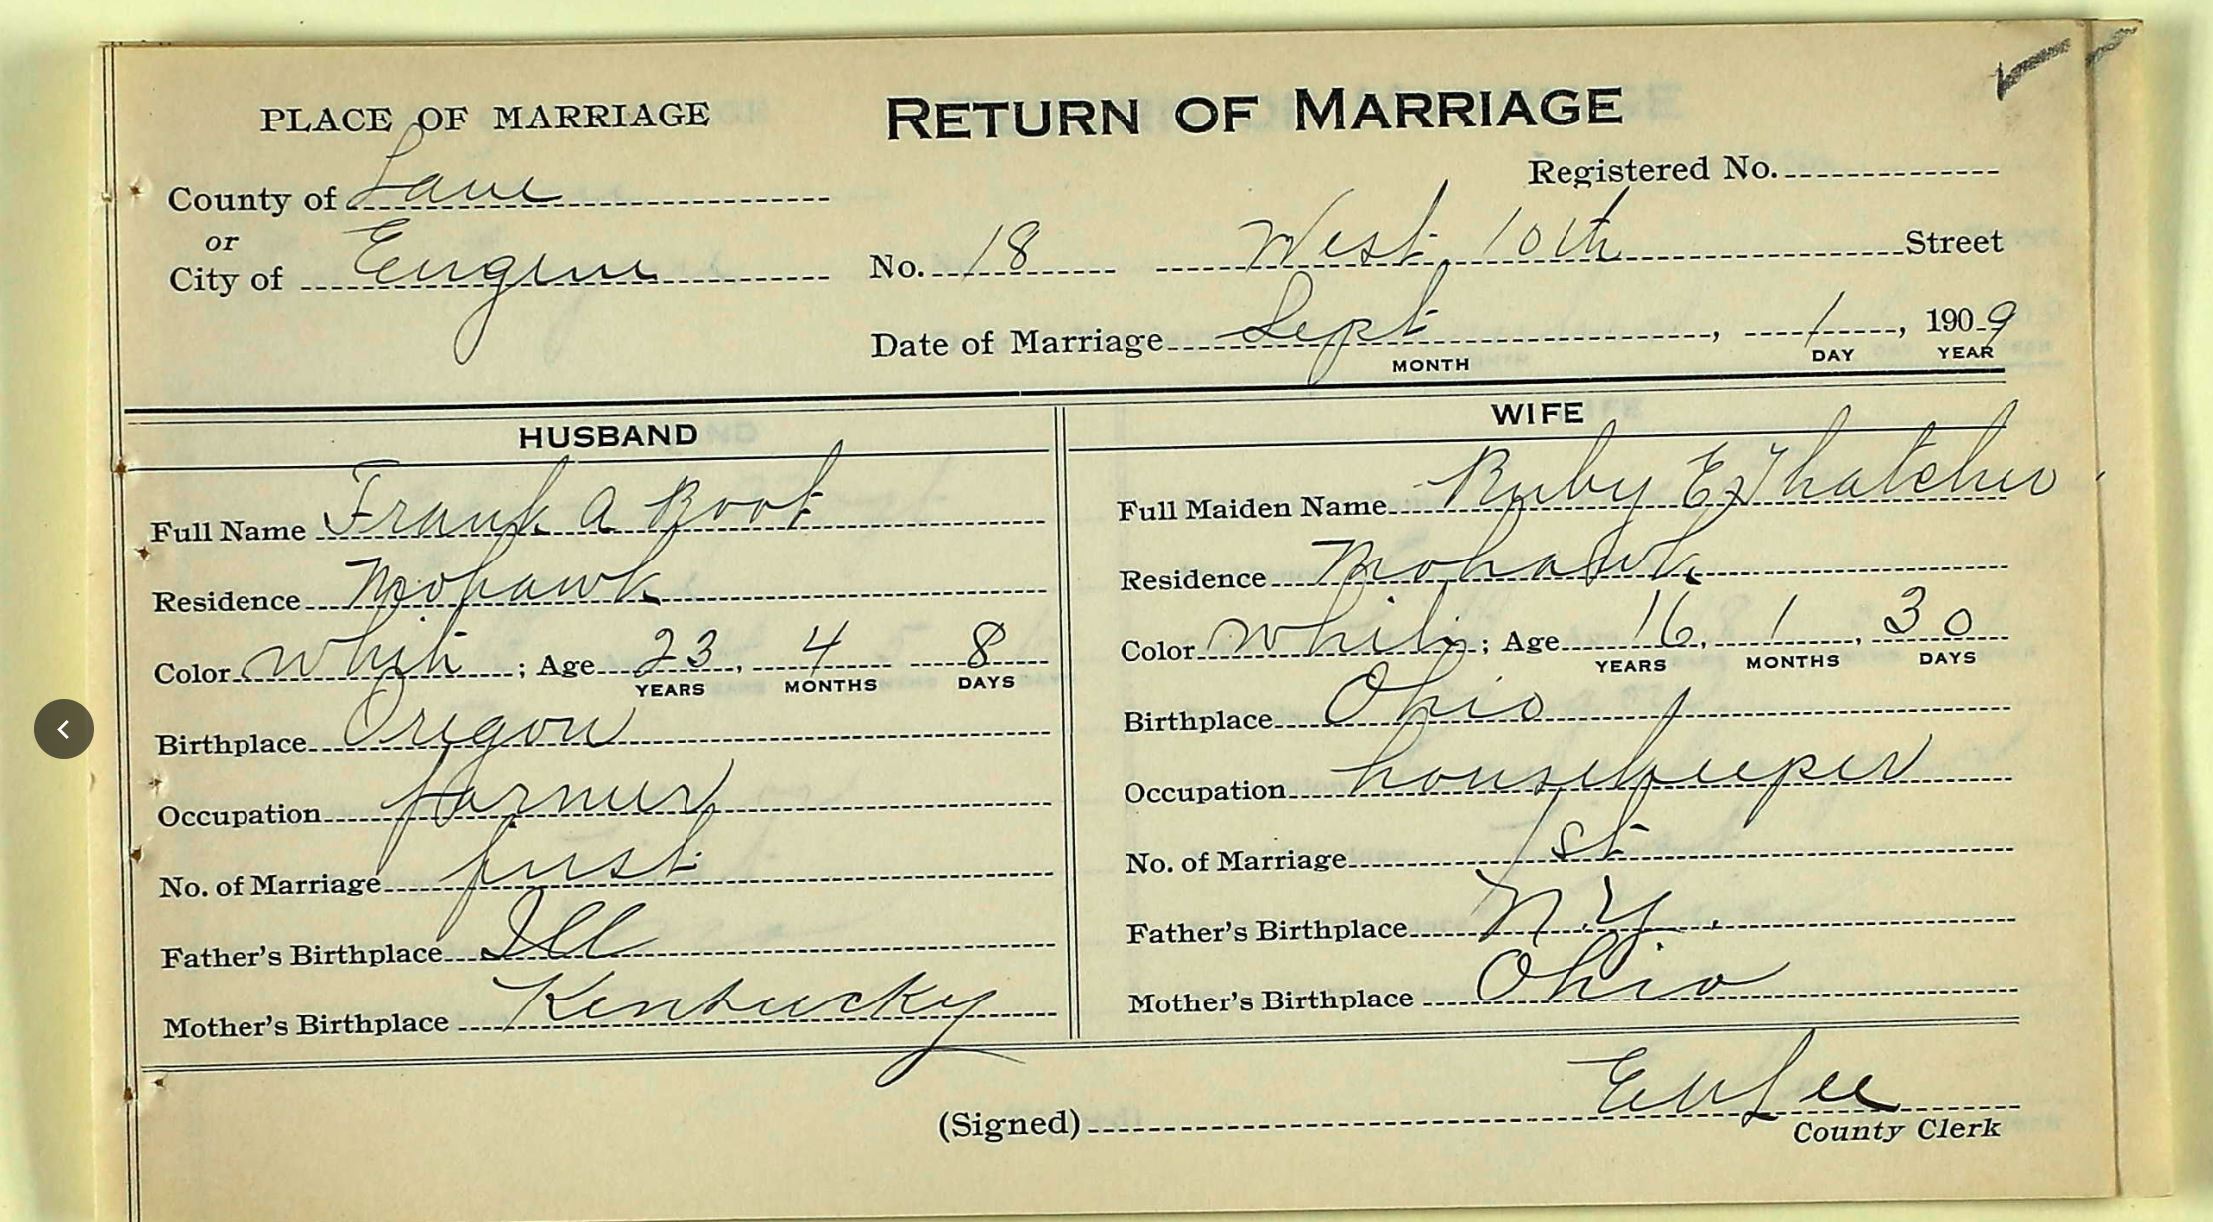 PLACE OF MARRIAGE
RETURN OF MARRIAGE
Registered No.
County of Lane
or
City of Eugene
No. 18 West 10th Street
Date of Marriage Sept, 1, 1909
MONTH DAY YEAR
HUSBAND
Full Name Frank A Root
Residence Mohawk
Color White; Age 23, 4 8
YEARS MONTHS DAYS
Birthplace Oregon
Occupation farmer
No. of Marriage first
Father's Birthplace Ill
Mother's Birthplace Kentucky
WIFE
Full Maiden Name Ruby E Thatcher
Residence Mohawk
Color White; Age 16, 1, 30
YEARS MONTHS DAYS
Birthplace Ohio
Occupation housekeeper
No. of Marriage 1st
Father's Birthplace N.Y.
Mother's Birthplace Ohio
(Signed) E U Lee
County Clerk